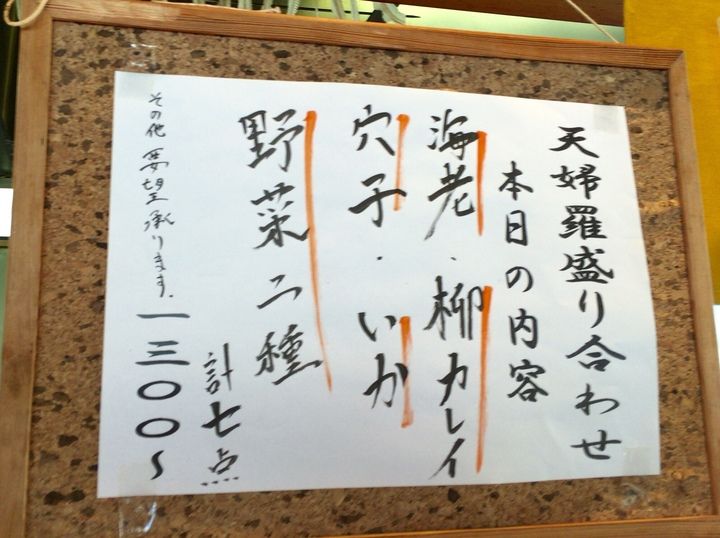 天婦羅盛り合わせ
本日の内容
海老・柳カレイ
穴子・いか
野菜二種
計七点
その他要望承ります。
一三〇〇〜